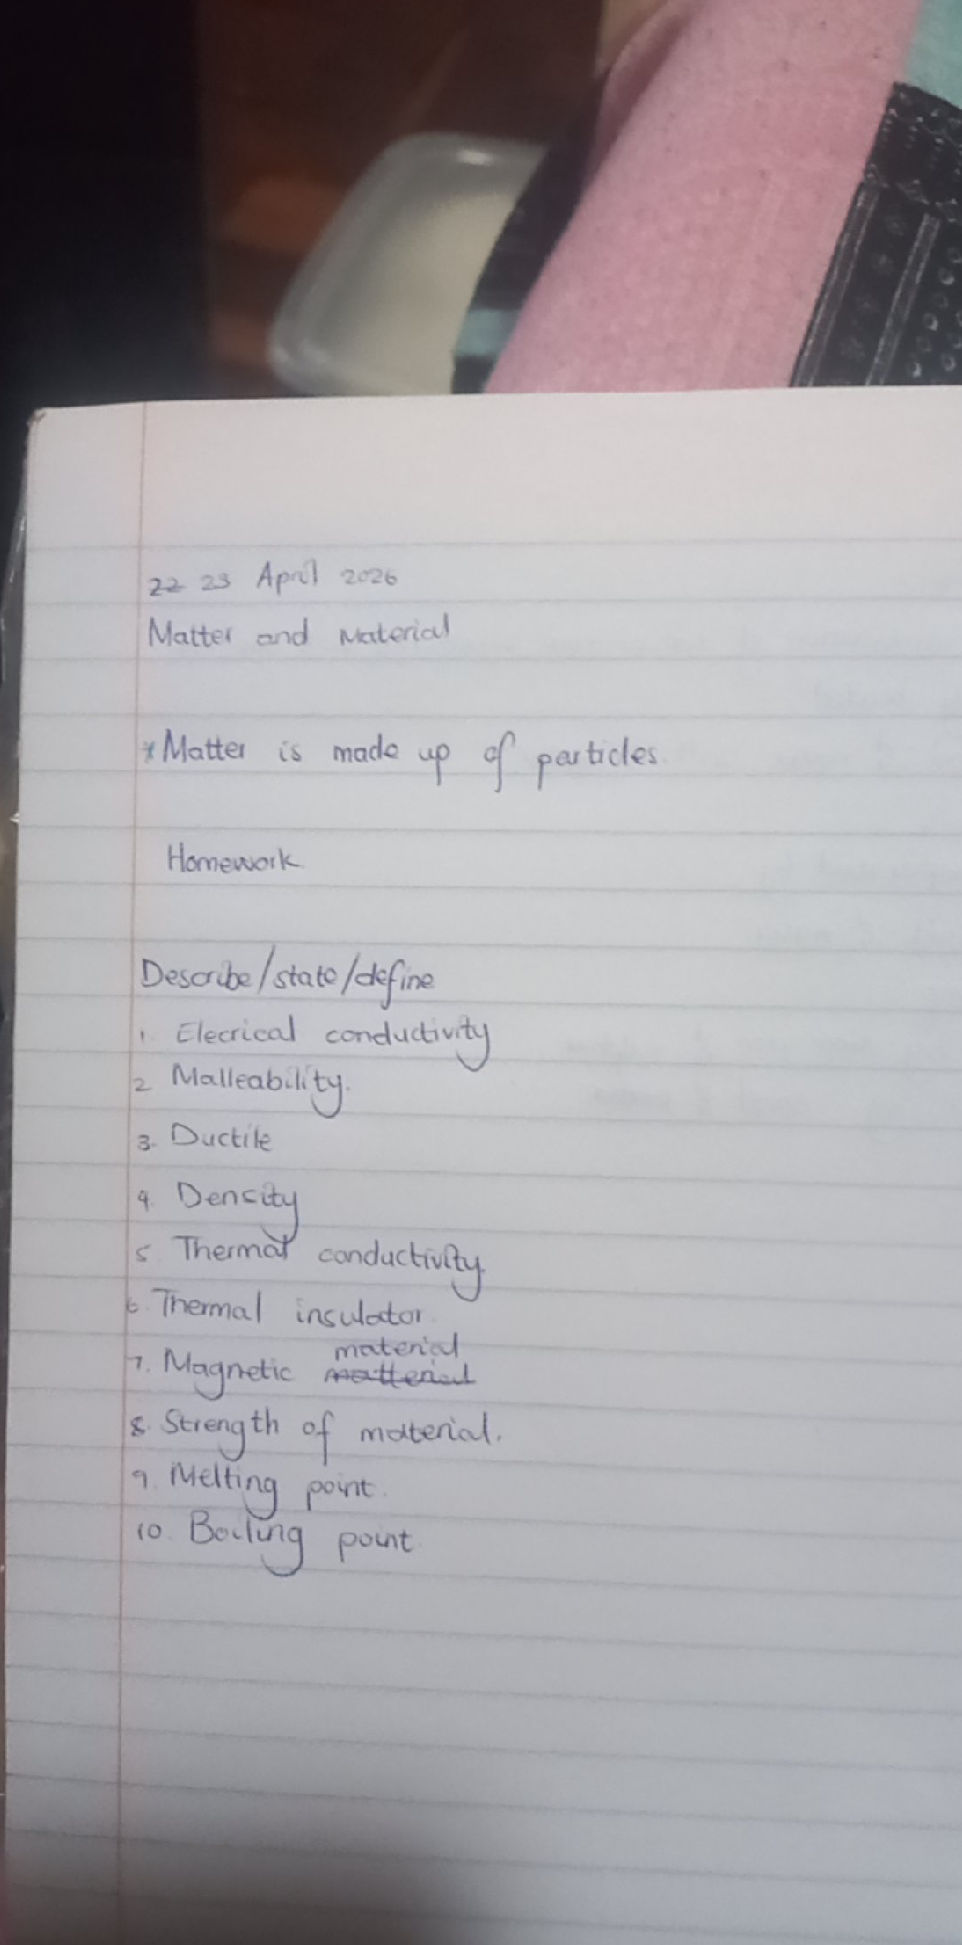 22 23 April 2026
Matter and Material
* Matter is made up of particles.
Homework
Describe/state/define
1. Elecrical conductivity
2 Malleability.
3. Ductile
4. Density
5. Thermal conductivity.
6. Thermal insulator.
material
7. Magnetic matterial
8. Strength of material.
9. Melting point.
10. Boiling point